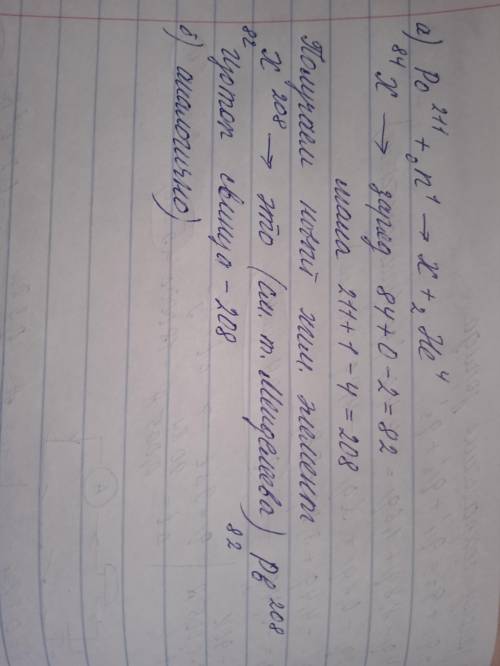 а) Po²¹¹ + ₀n¹ → x + ₂He⁴
₈₄X → заряд 84 + 0 - 2 = 82
масса 211 + 1 - 4 = 208
Получаем новый хим. элемент
₈₂X²⁰⁸ → это (см. т. Менделеева) ₈₂Pb²⁰⁸
изотоп свинца - 208
б) аналогично)